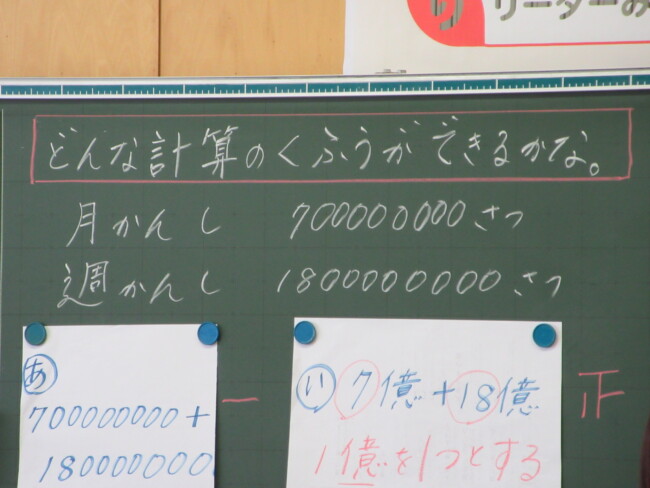 り リーダー
どんな計算のくふうができるかな。
月かんし 700000000さつ
週かんし 1800000000さつ
あ
700000000+
180000000
一
い 7億+18億
1億を1つとする
正